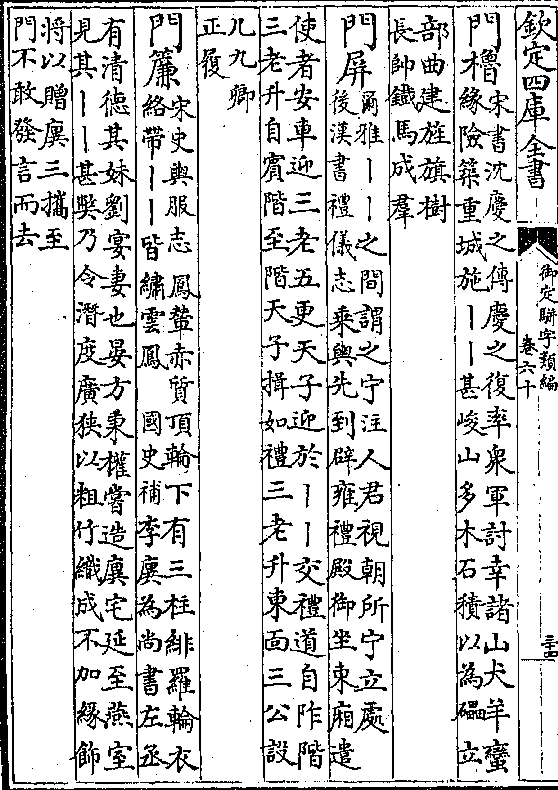 欽定四庫全書
御定駢字類編
卷六十
門櫓
宋書沈慶之傳慶之復率衆軍討幸諸山犬羊蠻
緣險築重城施丨丨甚峻山多木石積以為礌立
部曲建旌旗樹
長帥鐵馬成羣
門屏
爾雅丨丨之間謂之宁注人君視朝所宁立處
後漢書禮儀志乘輿先到辟雍禮殿御坐東廂遣
使者安車迎三老五更天子迎於丨丨交禮道自阼階
三老升自賓階至階天子揖如禮三老升東面三公設
几九卿
正履
門簾
宋史輿服志鳳輦赤質頂輪下有三柱緋羅輪衣
絡帶丨丨皆繡雲鳳 國史補李廙為尚書左丞
有清德其妹劉宴妻也晏方秉權嘗造廙宅延至燕室
見其丨丨甚弊乃令潛度廣狹以粗竹織成不加緣飾
將以贈廙三攜至
門不敢發言而去